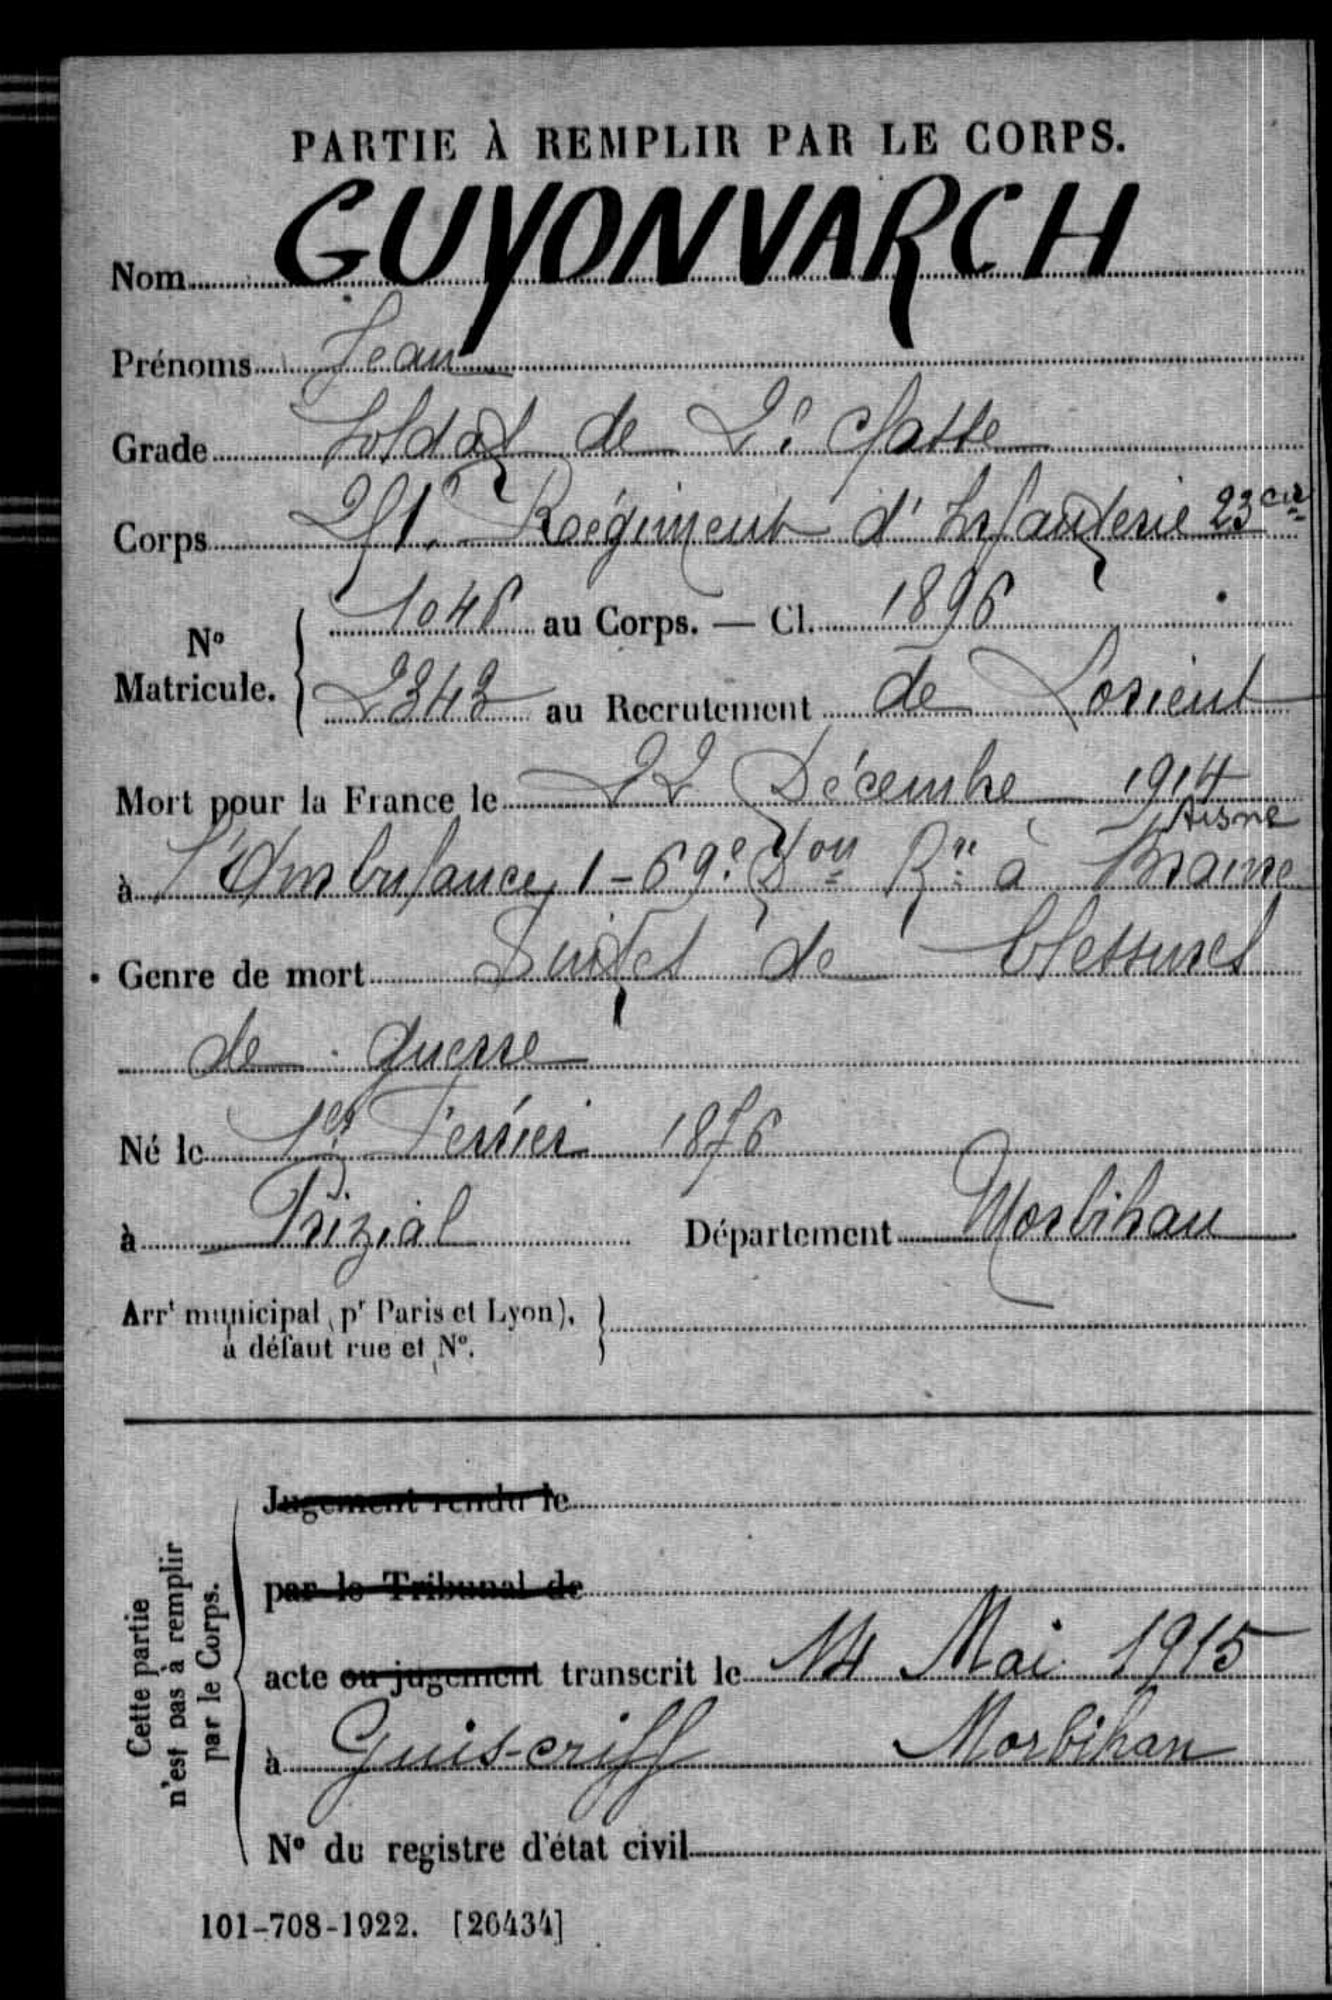 PARTIE À REMPLIR PAR LE CORPS.
Nom GUYONVARCH
Prénoms Jean
Grade Soldat de 2e classe
Corps Régiment d'Infanterie 23 cie
N° Matricule. { au Corps. — Cl. 1896
2343 au Recrutement de Lorient
Mort pour la France le 22 Décembre 1914
Aisne
à l'Ambulance 1-69e Don Rve à Braine
Genre de mort Suites de blessures
de guerre
Né le 1er Février 1876
à Prizial Département Morbihan
Arrt municipal (pr Paris et Lyon), }
à défaut rue et N°.
Cette partie
n'est pas à remplir
par le Corps.
Jugement rendu le
par le Tribunal de
acte ou jugement transcrit le 14 Mai 1915
à Guis-criff Morbihan
N° du registre d'état civil
101-708-1922. [26434]